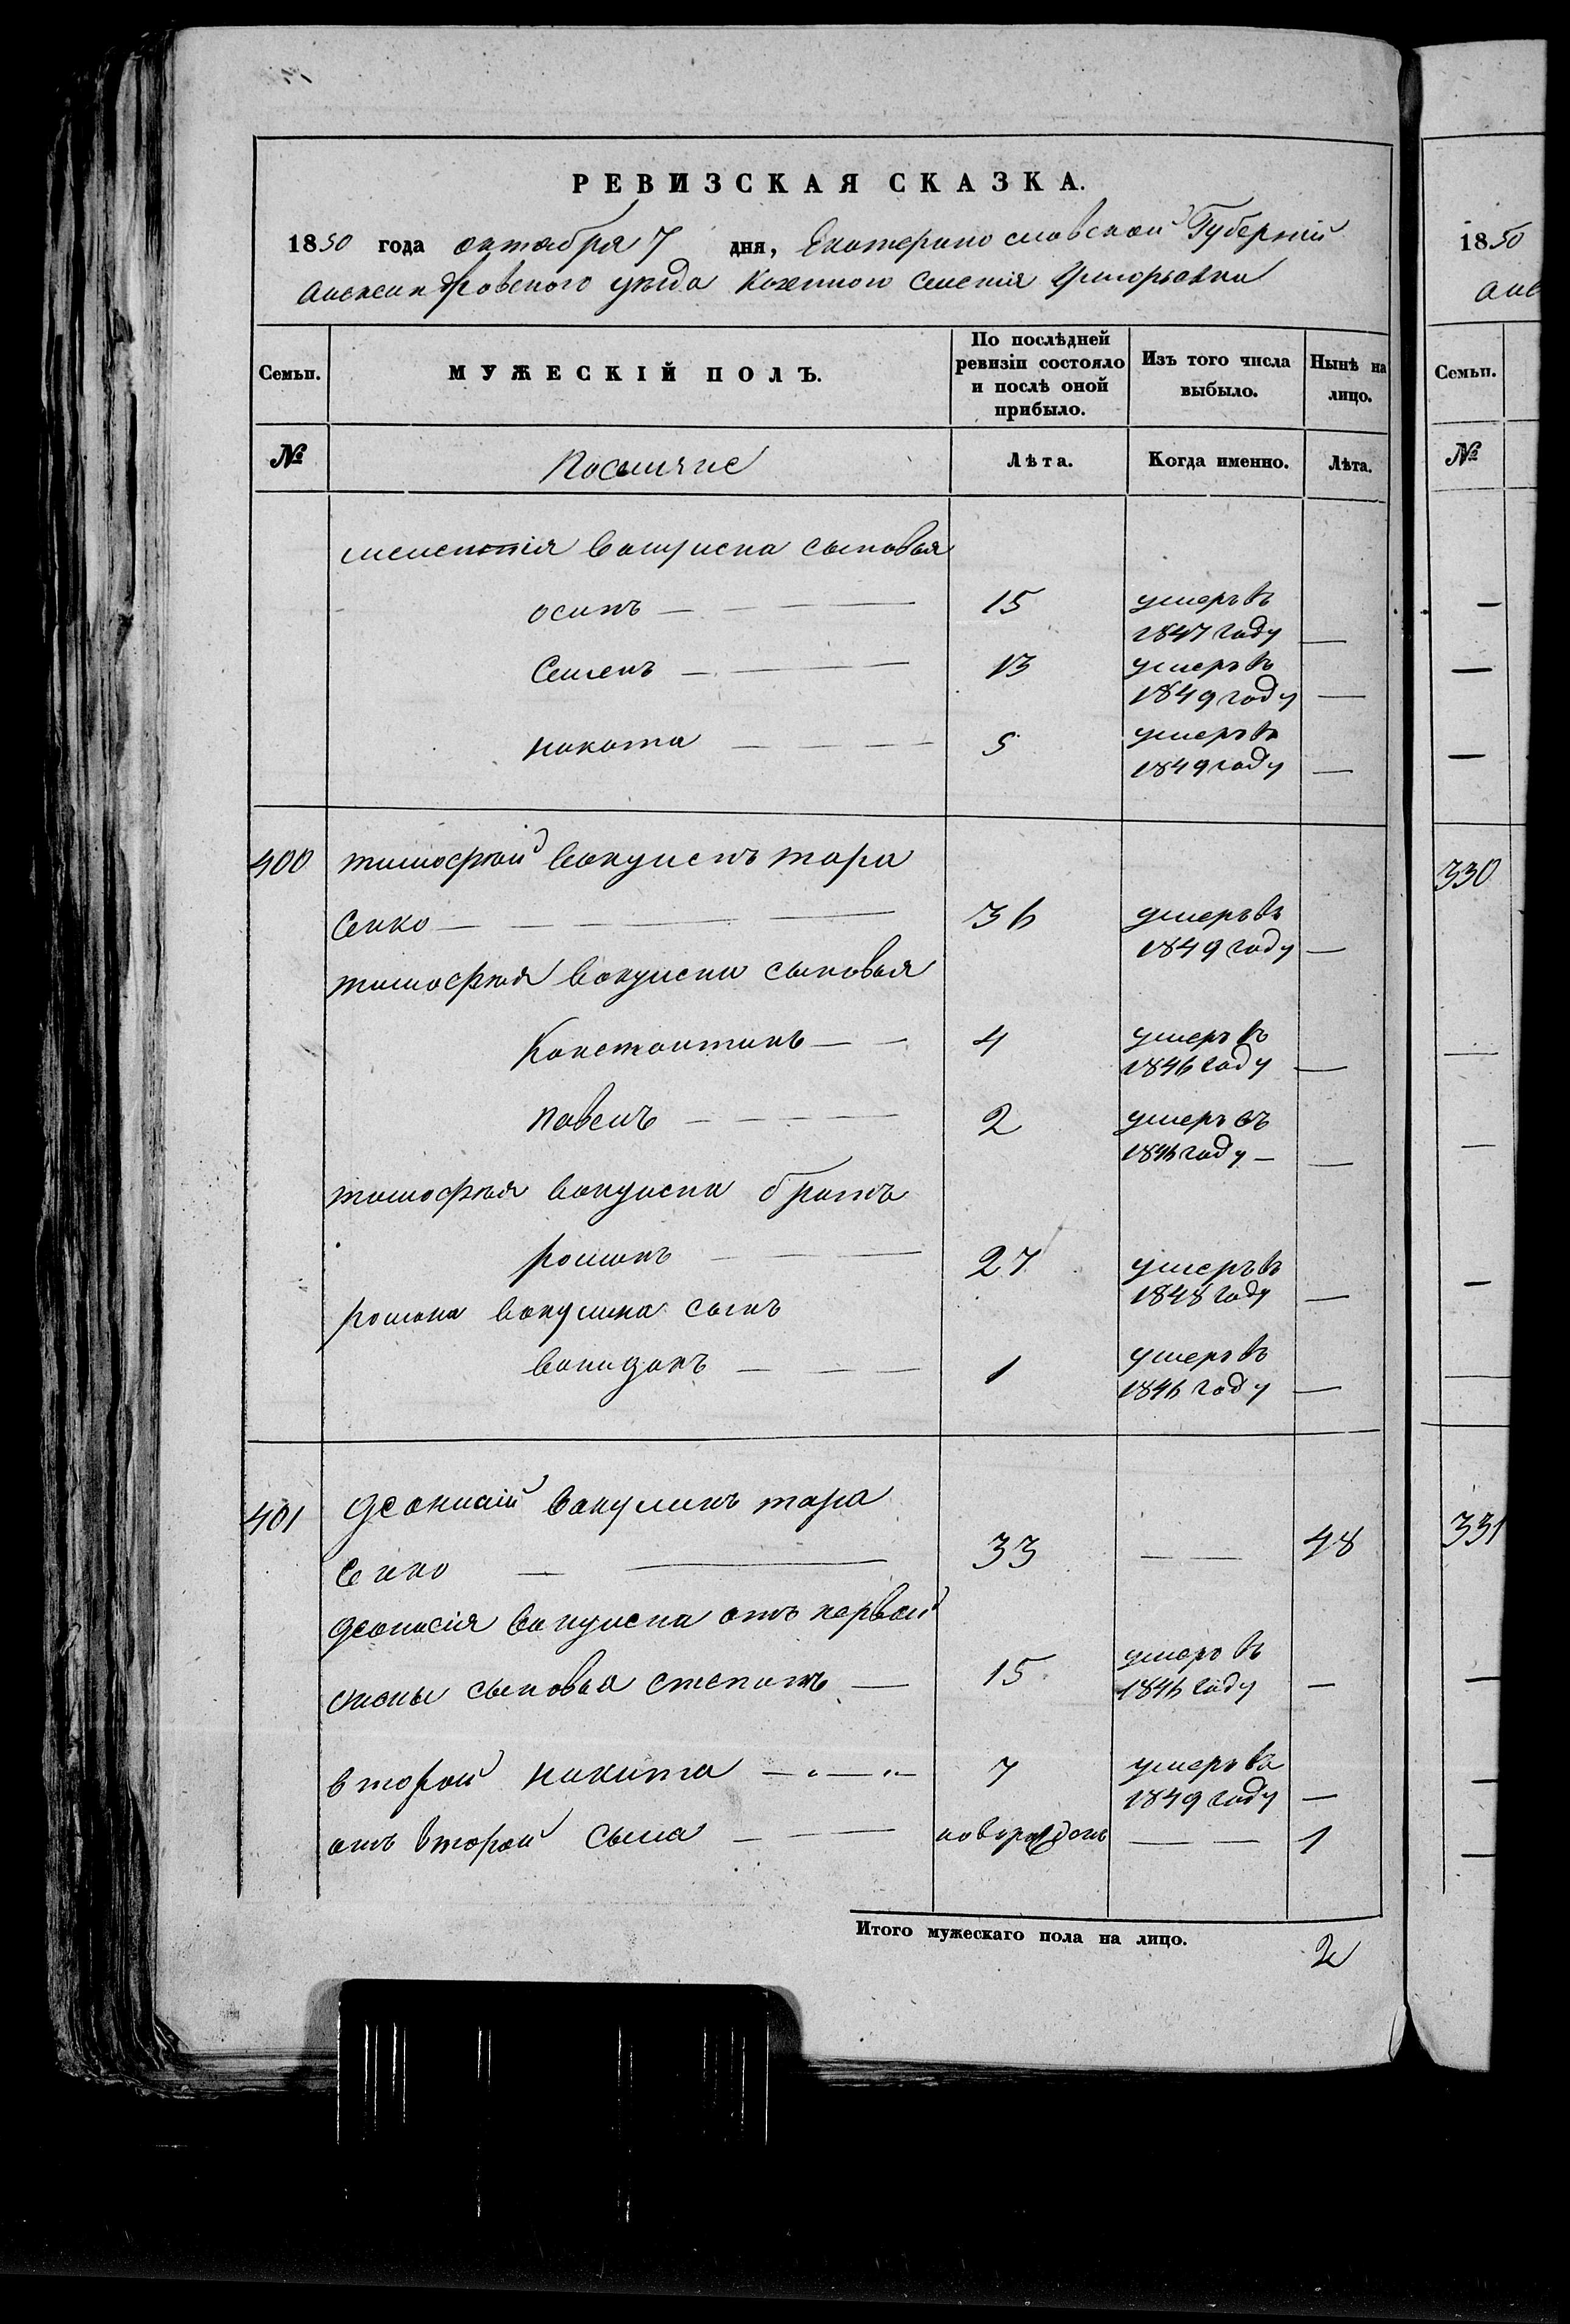 РЕВИЗСКАЯ СКАЗКА.
1850 года октября 7 дня, Екатеринославской Губерніи
Александровского уѣзда Казенного Селенія Григорьевки
Семьи.
МУЖЕСКІЙ ПОЛЪ.
По послѣдней ревизіи состояло и послѣ оной прибыло.
Изъ того числа выбыло.
Нынѣ на лицо.
№
Лѣта.
Когда именно.
Лѣта.
мелентія Вакулена сыновья
осипъ — 15 умеръ въ 1847 году —
Семенъ — 13 умеръ въ 1849 году —
никита — 5 умеръ въ 1849 году —
400 тимофей Вакуленъ тара
сенко — 36 умеръ въ 1849 году —
тимофея Вакулена сыновья
Константинъ — 4 умеръ въ 1846 году —
павелъ — 2 умеръ въ 1846 году —
тимофея вакулена братъ
романъ — 27 умеръ въ 1848 году —
романа вакулина сынъ
— 1 умеръ въ 1846 году —
401 Вакулинъ тара
сенко — 33 — — 48
Вакулена отъ первой
жены сыновья степанъ — 15 умеръ въ 1846 году —
второй никита — 7 умеръ въ 1849 году —
отъ второй сына — новорожденъ — 1
Итого мужескаго пола на лицо. 2
1850
Алe
Семьи.
№
330
331